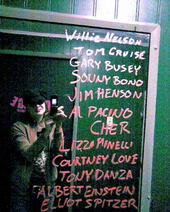 Willie Nelson
TOM CRUISE
GARY BUSEY
SONNY BONO
JIM HENSON
AL PACINO
CHER
LIZZA MINELLI
COURTNEY LOVE
TONY DANZA
ALBERT EINSTEIN
ELIOT SPITZER